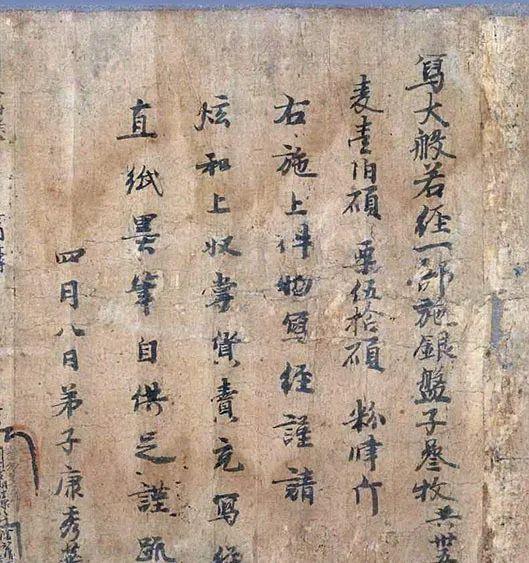 寫大般若經一部施銀盤子叁枚共卅五
麦壹伯碩 粟伍拾碩 粉肆斤
右施上件物寫經謹請
炫和上收掌貨賣充寫經
直紙墨筆自供足謹疏
四月八日弟子康秀華